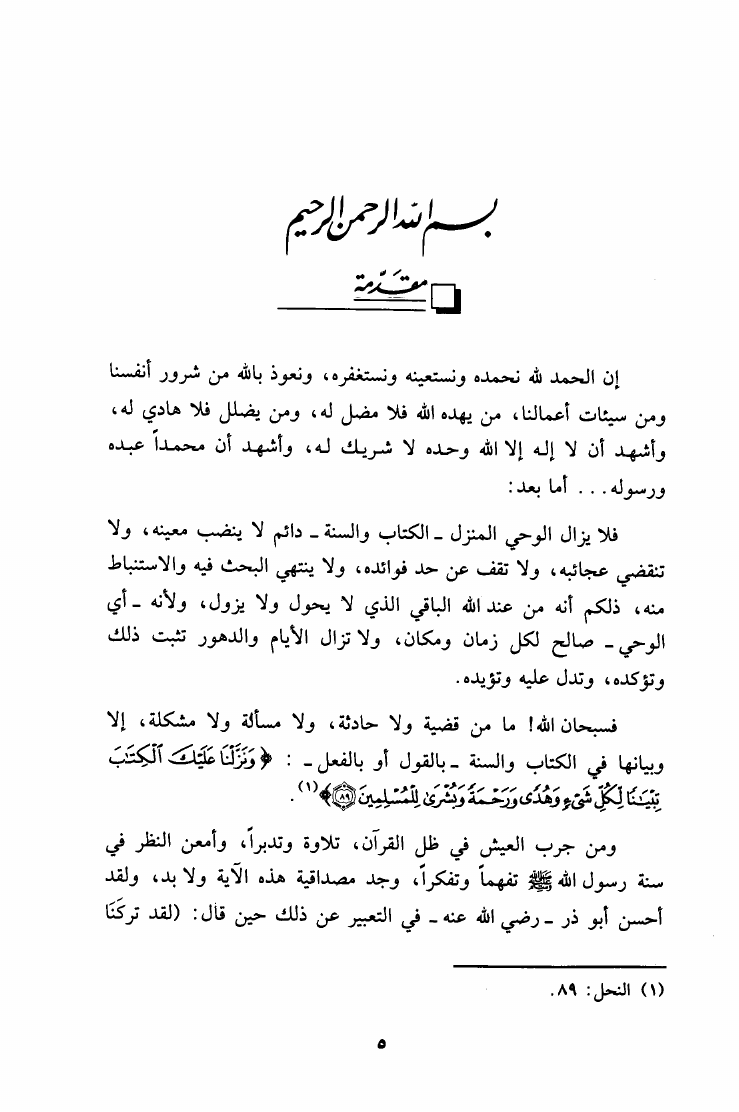 بسم الله الرحمن الرحيم
مقدّمة
إن الحمد لله نحمده ونستعينه ونستغفره، ونعوذ بالله من شرور أنفسنا
ومن سيئات أعمالنا، من يهده الله فلا مضل له، ومن يضلل فلا هادي له،
وأشهد أن لا إله إلا الله وحده لا شريك له، وأشهد أن محمداً عبده
ورسوله... أما بعد:
فلا يزال الوحي المنزل ـ الكتاب والسنة ـ دائم لا ينضب معينه، ولا
تنقضي عجائبه، ولا تقف عن حد فوائده، ولا ينتهي البحث فيه والاستنباط
منه، ذلكم أنه من عند الله الباقي الذي لا يحول ولا يزول، ولأنه ـ أي
الوحي ـ صالح لكل زمان ومكان، ولا تزال الأيام والدهور تثبت ذلك
وتؤكده، وتدل عليه وتؤيده.
فسبحان الله! ما من قضية ولا حادثة، ولا مسألة ولا مشكلة، إلا
وبيانها في الكتاب والسنة ـ بالقول أو بالفعل ـ : ﴿وَنَزَّلْنَا عَلَيْكَ ٱلْكِتَٰبَ
تِبْيَٰنًا لِّكُلِّ شَىْءٍ وَهُدًى وَرَحْمَةً وَبُشْرَىٰ لِلْمُسْلِمِينَ ٨٩﴾(١).
ومن جرب العيش في ظل القرآن، تلاوة وتدبراً، وأمعن النظر في
سنة رسول الله ﷺ تفهماً وتفكراً، وجد مصداقية هذه الآية ولا بد، ولقد
أحسن أبو ذر ـ رضي الله عنه ـ في التعبير عن ذلك حين قال: (لقد تركَنَا
(١) النحل: ٨٩.
٥